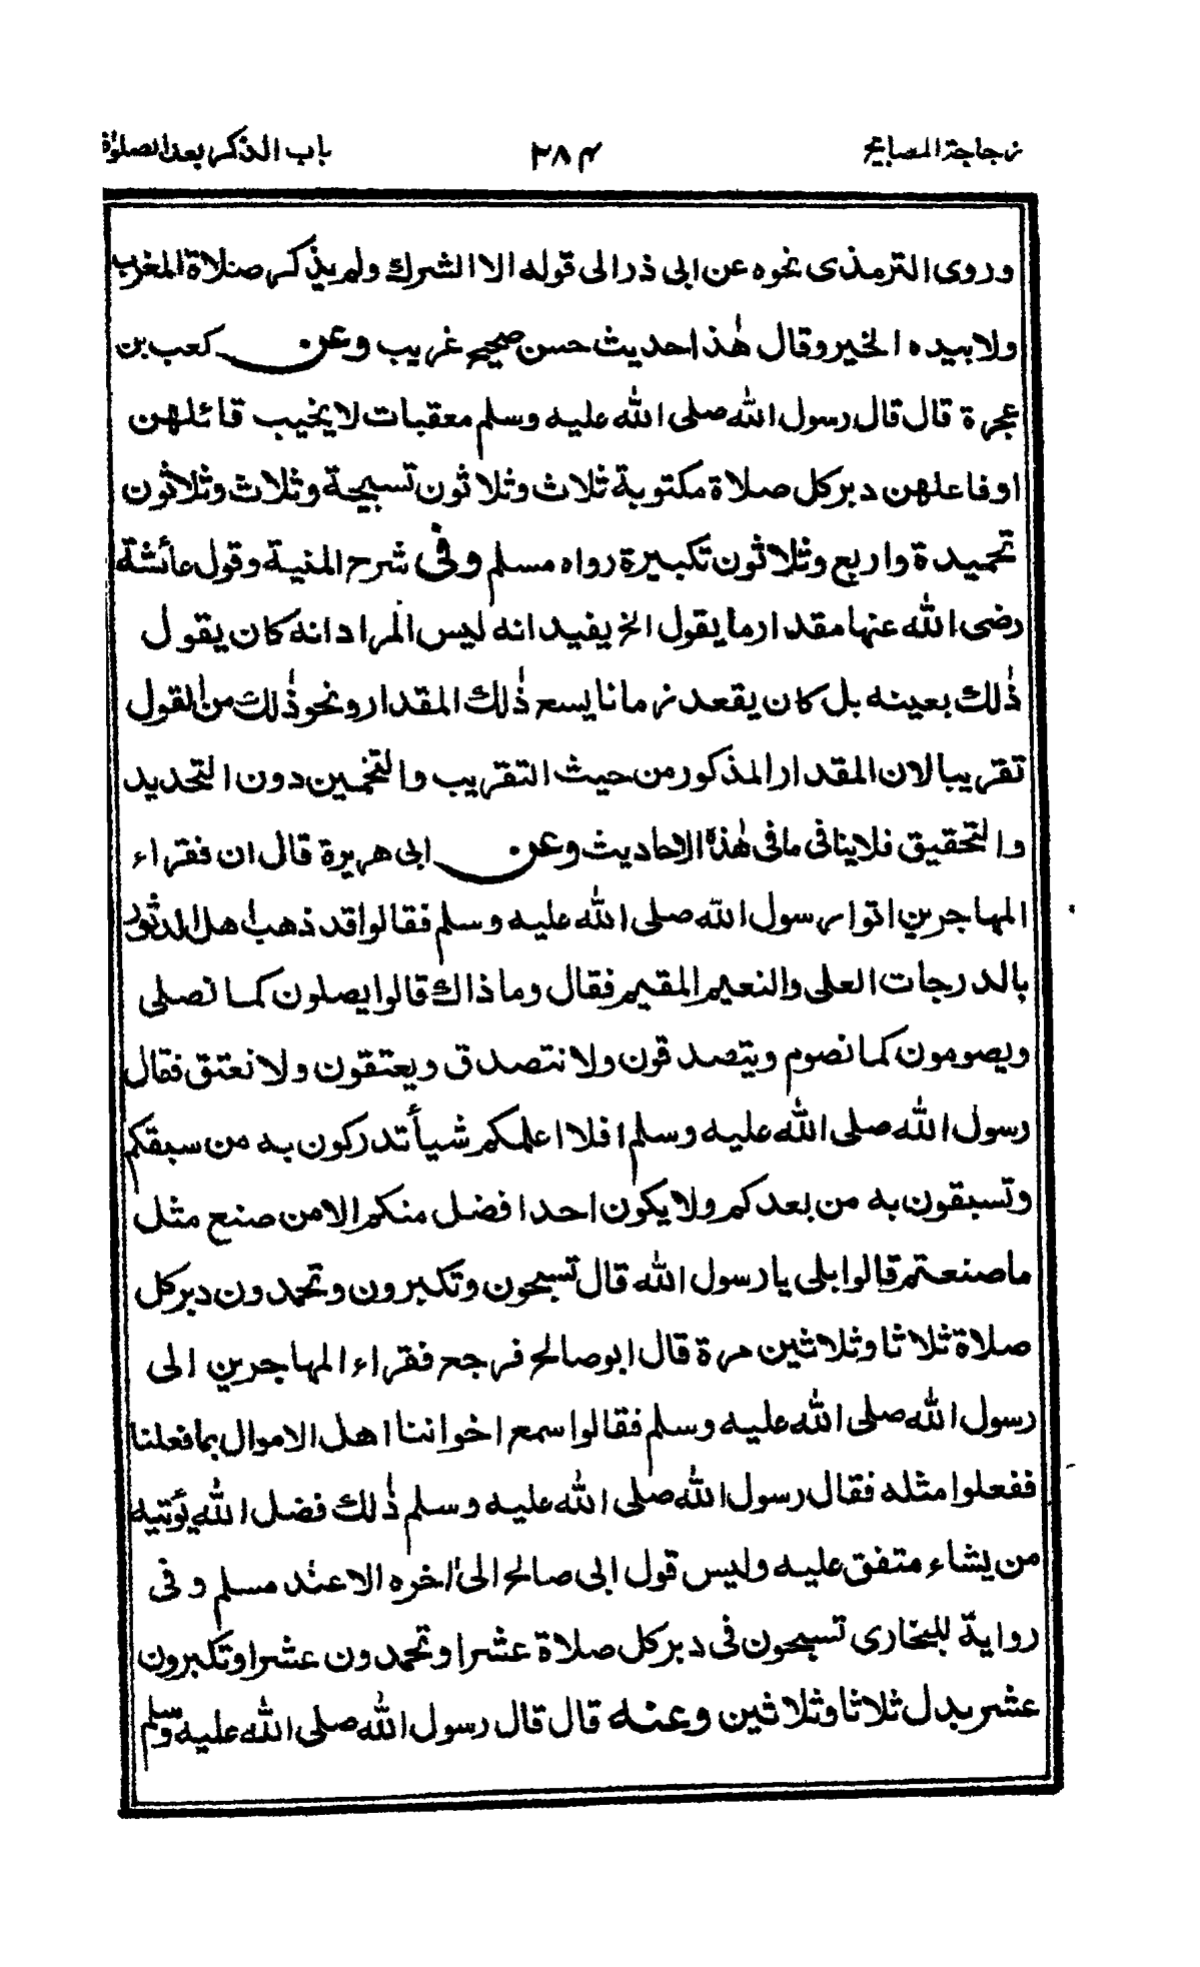 زجاجة المصابيح ٢٨٤ باب الذكر بعد الصلوٰة
وروى الترمذى نحوه عن ابى ذر الى قوله الا الشرك ولم يذكر صلاة المغرب
ولا بيده الخير وقال هٰذا حديث حسن صحيح غريب وعن كعب بن
عجرة قال قال رسول الله صلى الله عليه وسلم معقبات لا يخيب قائلهن
او فاعلهن دبر كل صلاة مكتوبة ثلاث وثلاثون تسبيحة وثلاث وثلاثون
تحميدة واربع وثلاثون تكبيرة رواه مسلم وفى شرح المنية وقول عائشة
رضى الله عنها مقدار ما يقول الخ يفيد انه ليس المراد انه كان يقول
ذٰلك بعينه بل كان يقعد زمانا يسع ذٰلك المقدار ونحو ذٰلك من القول
تقريبا لان المقدار المذكور من حيث التقريب والتخمين دون التحديد
والتحقيق فلا ينافى ما فى هٰذه الاحاديث وعن ابى هريرة قال ان فقراء
المهاجرين اتوا رسول الله صلى الله عليه وسلم فقالوا قد ذهب اهل الدثور
بالدرجات العلى والنعيم المقيم فقال وما ذاك قالوا يصلون كما نصلى
ويصومون كما نصوم ويتصدقون ولا نتصدق ويعتقون ولا نعتق فقال
رسول الله صلى الله عليه وسلم افلا اعلمكم شيأ تدركون به من سبقكم
وتسبقون به من بعدكم ولا يكون احد افضل منكم الا من صنع مثل
ما صنعتم قالوا بلى يا رسول الله قال تسبحون وتكبرون وتحمدون دبر كل
صلاة ثلاثا وثلاثين مرة قال ابو صالح فرجع فقراء المهاجرين الى
رسول الله صلى الله عليه وسلم فقالوا سمع اخواننا اهل الاموال بما فعلنا
ففعلوا مثله فقال رسول الله صلى الله عليه وسلم ذٰلك فضل الله يؤتيه
من يشاء متفق عليه وليس قول ابى صالح الى اٰخره الا عند مسلم وفى
رواية للبخارى تسبحون فى دبر كل صلاة عشرا وتحمدون عشرا وتكبرون
عشر بدل ثلاثا وثلاثين وعنه قال قال رسول الله صلى الله عليه وسلم